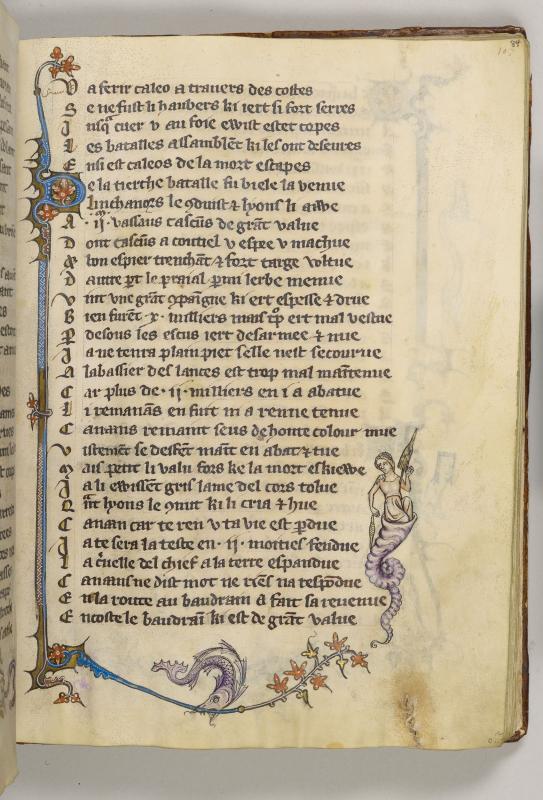 84
10
U a ferir caleo a travers des costes
S e ne fust li haubers ki iert si fort serres
J usq̃ cuer v au foie ewist estet copes
L es batalles assamblẽt ki les ont deseures
E nsi est caleos de la mort escapes
D e la tierche batalle fu biele la venue
C linchanors le ɔduist & lyons li aiwe
A .ii.ᵐ vassaus cascũs de grãt value
D ont cascũs a coutiel v espee v machue
& bon espier trenchãt & fort targe voltue
D autre pt le praial pmi lerbe menue
V int vne grãt ɔpaigne ki ert espesse & drue
B ien furẽt .x. milliers mais ert mal vestue
P desous les escus iert desarmee & nue
J a ne tenra plain piet selle nest secourue
A labassier des lances est trop mal maintenue
C ar plus de .ii. milliers en i a abatue
L i remanãs en fuit m a renne tenue
C ananis remanit seus de honte colour mue
V istemẽt se desfẽt maĩt en abat & tue
M ais petit li valu fors ke la mort eskiewe
J a li ewissẽt gris lame del cors tolue
Q ñt lyons le ɔnut ki li cria & hue
C anan car te ren v ta vie est pdue
J a te sera la teste en .ii. moities fendue
L a cuelle del chief a la terre espandue
C ananis ne dist mot ne respõdue
E n la route au baudrain a fait sa revenue
E ncoste le baudraĩ ki est de grãt value